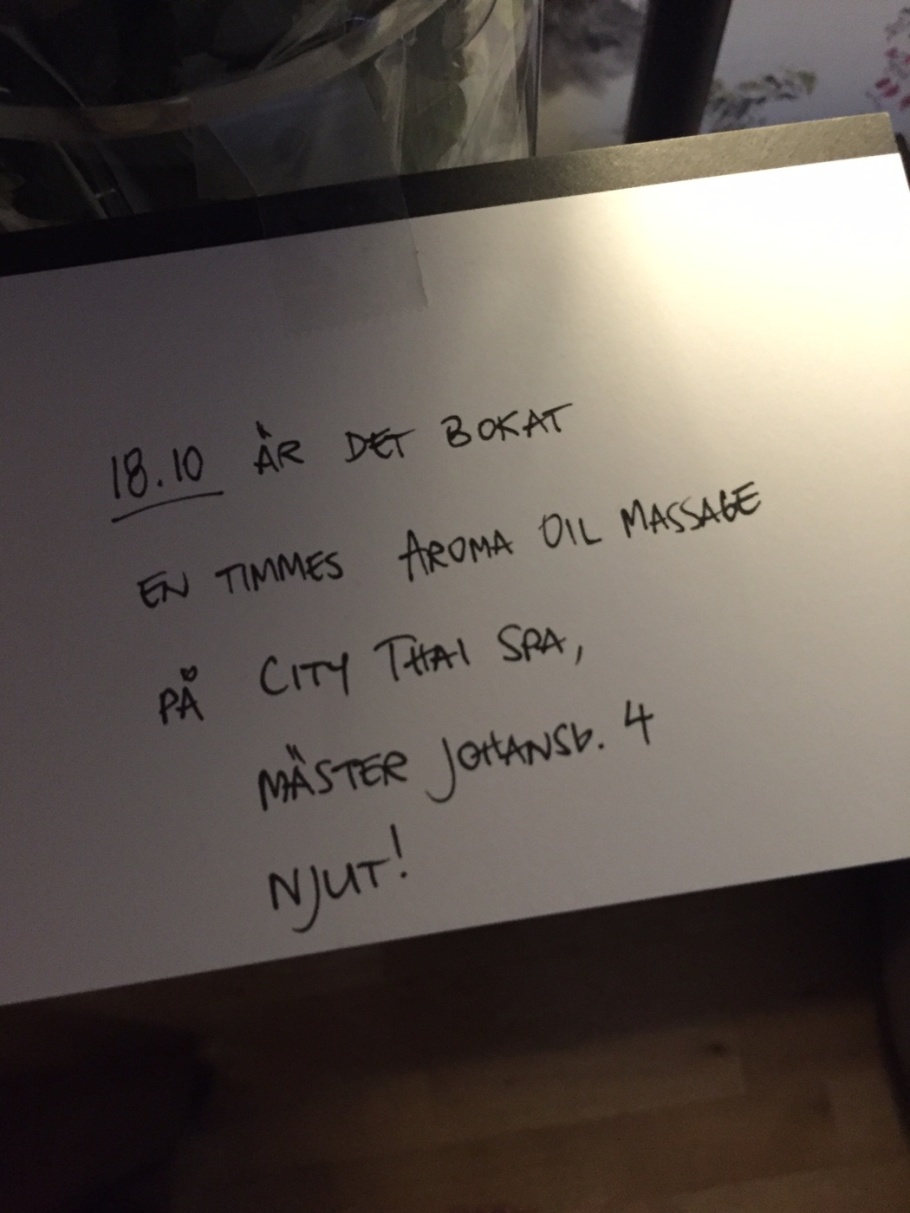 18.10 ÄR DET BOKAT
EN TIMMES AROMA OIL MASSAGE
PÅ CITY THAI SPA,
MÄSTER JOHANSG. 4
NJUT!